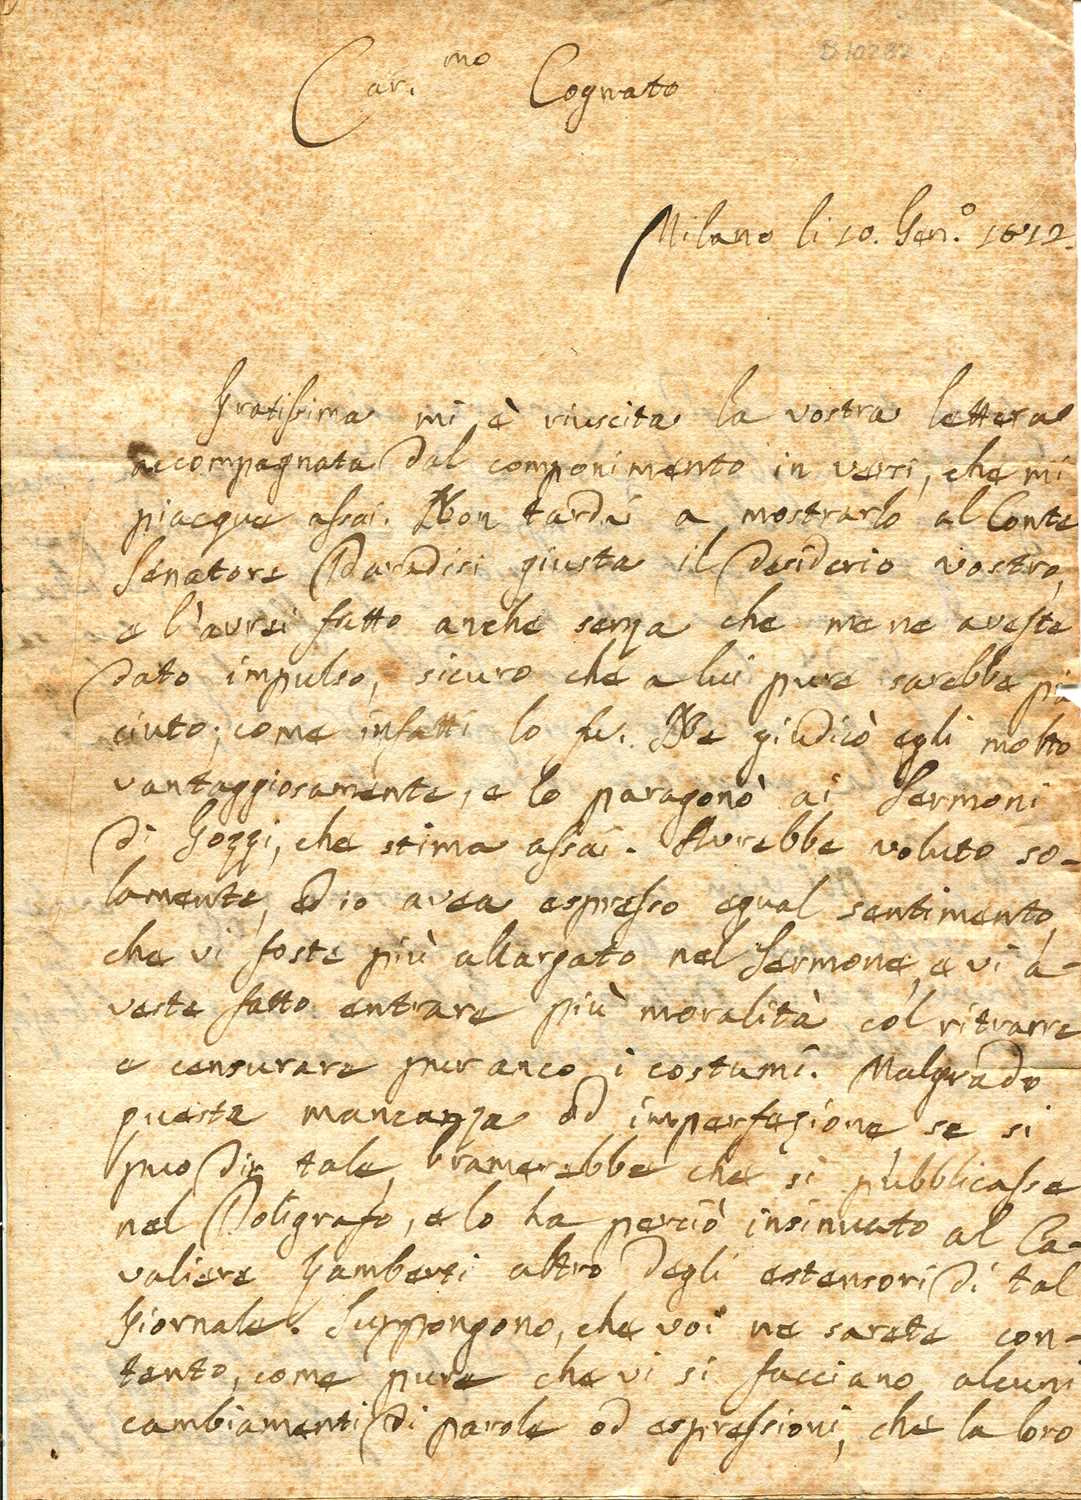 B 10282
Car.mo Cognato
Milano li 10. Gen.o 1812.
Gratissima mi è riuscita la vostra lettera
accompagnata dal componimento in versi, che mi
piacque assai. Non tardai a mostrarlo al Conte
Senatore Paradisi giusta il desiderio vostro,
e l'avrei fatto anche senza che me ne aveste
dato impulso, sicuro che a lui pure sarebbe pia
ciuto, come infatti lo fu. Ne giudicò egli molto
vantaggiosamente, e lo paragonò ai Sermoni
di Gozzi, che stima assai. Avrebbe voluto so-
lamente, ed io avea espresso egual sentimento,
che vi foste più allargato nel Sermone, e vi a-
veste fatto entrare più moralità col ritrarre
e censurare pur anco i costumi. Malgrado
questa mancanza od imperfezione se si
può dir tale, bramerebbe che si pubblicasse
nel Poligrafo, e lo ha perciò insinuato al Ca-
valiere Lamberti altro degli estensori di tal
Giornale. Suppongono, che voi ne sarete con-
tento, come pure che vi si facciano alcuni
cambiamenti di parole od espressioni, che la loro